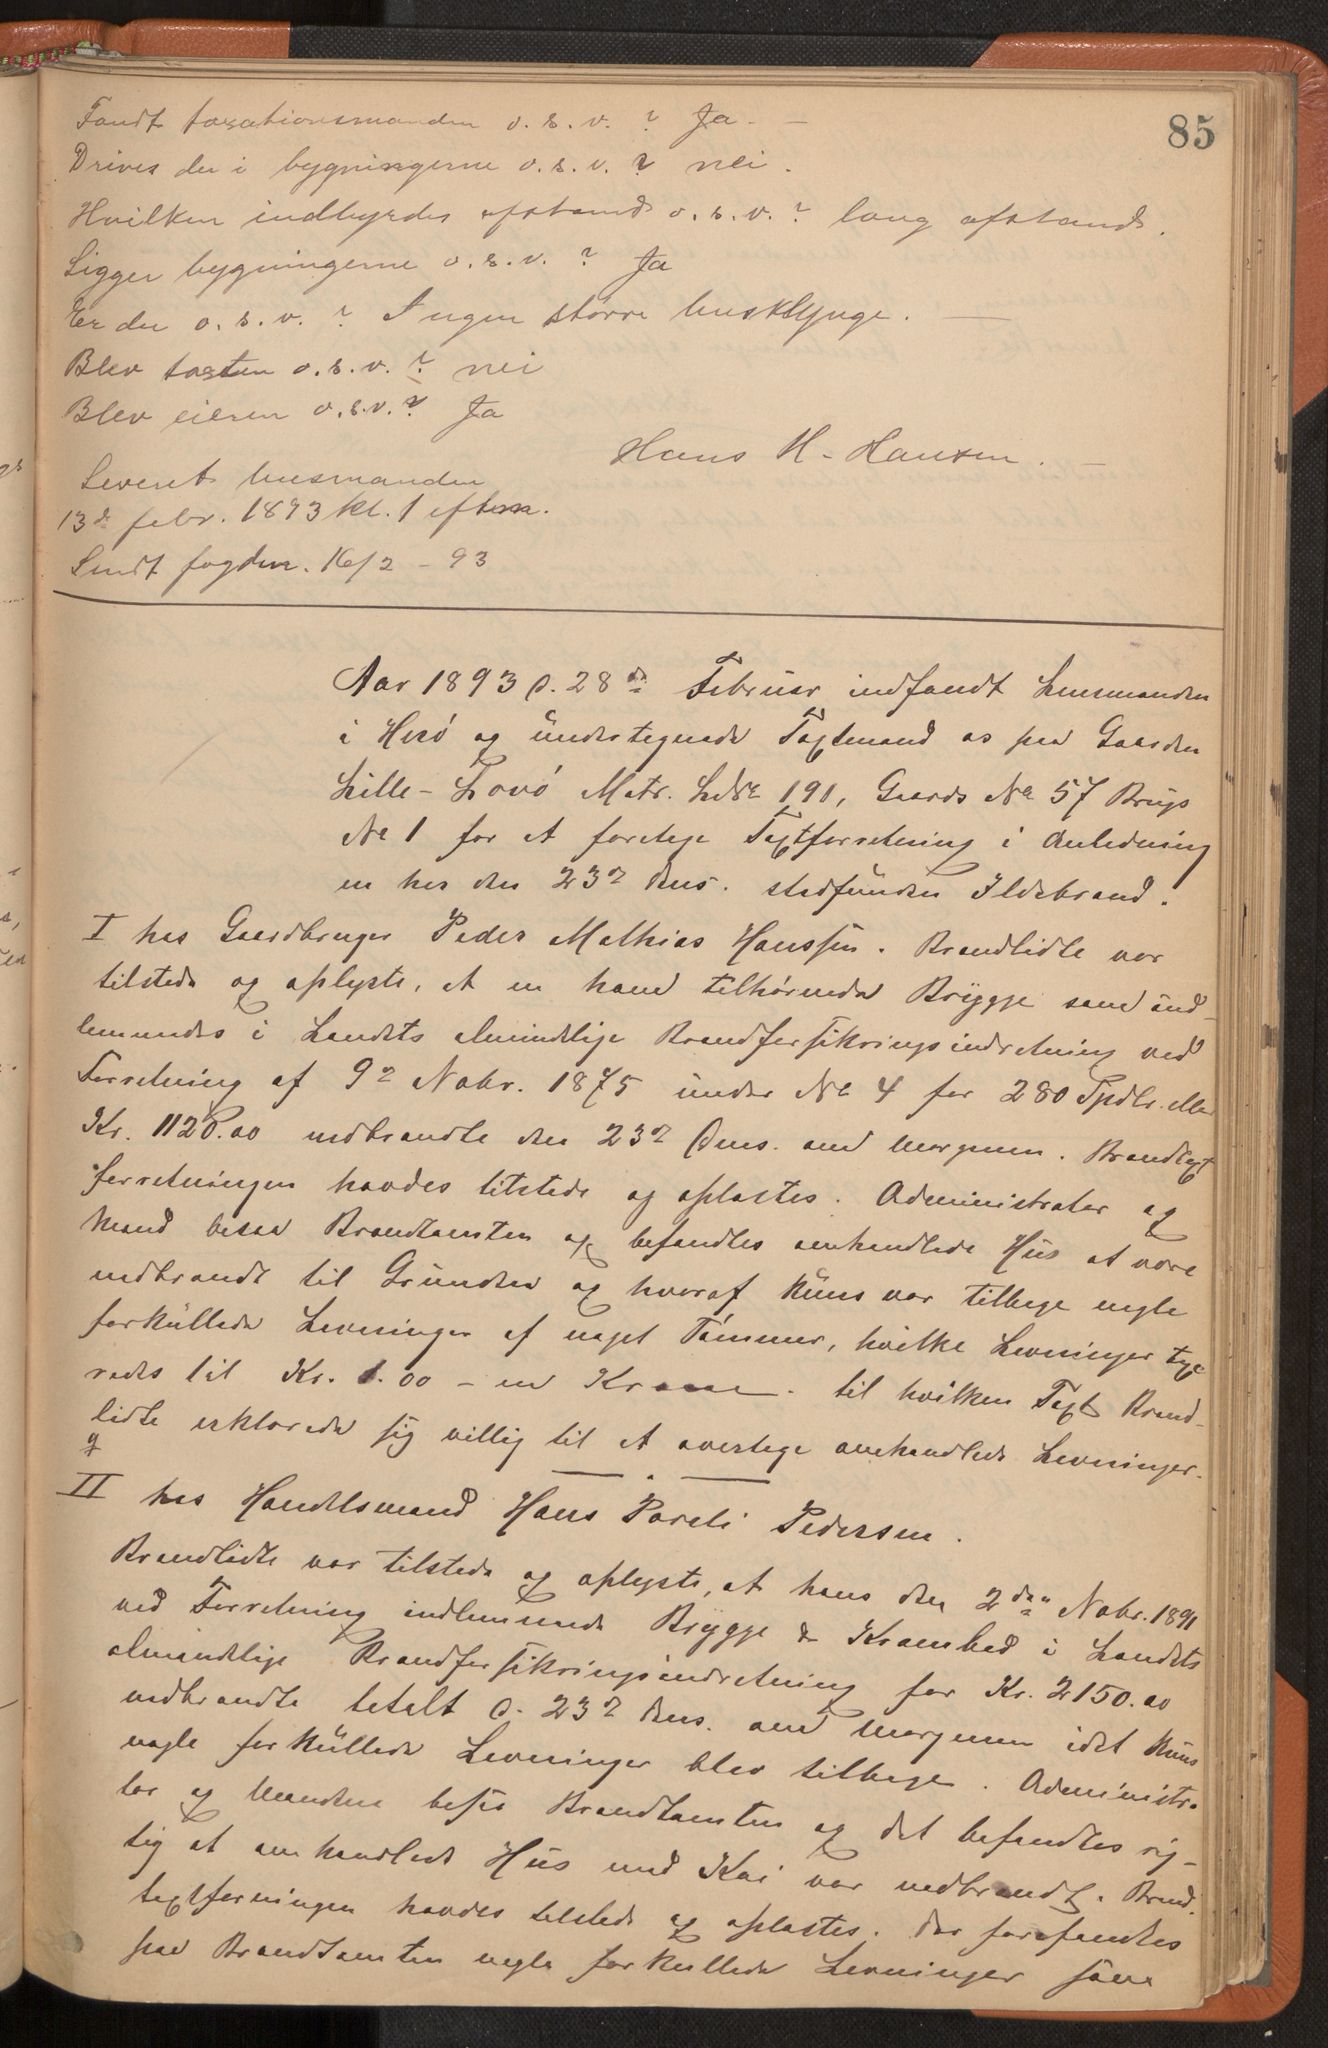 85
Fandt taxationsmanden o. s. v. ? Ja. —
Drives der i bygningerne o. s. v. ? nei.
Hvilken indbyrdes afstand o. s. v. ? lang afstand.
Ligger bygningerne o. s. v. ? Ja
Er der o. s. v. ? Ingen større husklynge. —
Blev taxten o. s. v. ? nei
Blev eieren o. s. v. ? Ja
Hans H. Hansen. —
Leveret lensmanden
13de febr. 1893 kl. 1 efterm.
Sendt fogden. 16/2 - 93
Aar 1893 d. 28de Februar indfandt Lensmanden
i Herø og undertegnede Taxtmand os paa Gaarden
Lille-Lovø Matr. LNr 191, Gaards No 57 Brugs
No 1 for at foretage Taxtforretning i Anledning
en her den 23de ds. stedfunden Ildebrand.
I hos Gaardbruger Peder Mathias Hanssen. Brandlidte var
tilstede og oplyste, at en ham tilhørende Brygge som ind-
lemmedes i Landets almindelige Brandforsikringsindretning ved
Forretning af 9de Novbr. 1875 under No 4 for 280 Spdlr. eller
Kr. 1120.00 nedbrandte den 23de ds. om Morgenen. Brandtaxt
forretningen havdes tilstede og oplæstes. Administrator og
Mænd besaa Brandtomten og befandtes omhandlede Hus at være
nedbrandt til Grunden og hvoraf kuns var tilbage nogle
forkullede Levninger af noget Tømmer, hvilke Levninger taxe
redes til Kr. 1.00 - en Krone - til hvilken Taxt Brand-
lidte erklærede sig villig til at overtage omhandlede Levninger.
II hos Handelsmand Hans Pareli Pedersen.
Brandlidte var tilstede og oplyste, at hans den 2den Novbr. 1891
ved Forretning indlemmede Brygge & Krambod i Landets
almindelige Brandforsikringsindretning for Kr. 2150.00
nedbrandte totalt d. 23de ds. om Morgenen idet kuns
nogle forkullede Levninger blev tilbage. Administra
tor og Mændene besaa Brandtomten og det befandtes rig-
tig at omhandlede Hus med Kai var nedbrandt. Brand-
taxtforningen havdes tilstede og oplæstes. Der forefandtes
paa Brandtomten nogle forkullede Levninger som